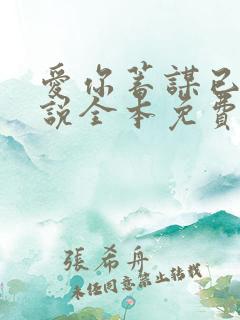 愛你蓄謀已
說全本免費
張希舟
未經同意禁止轉載